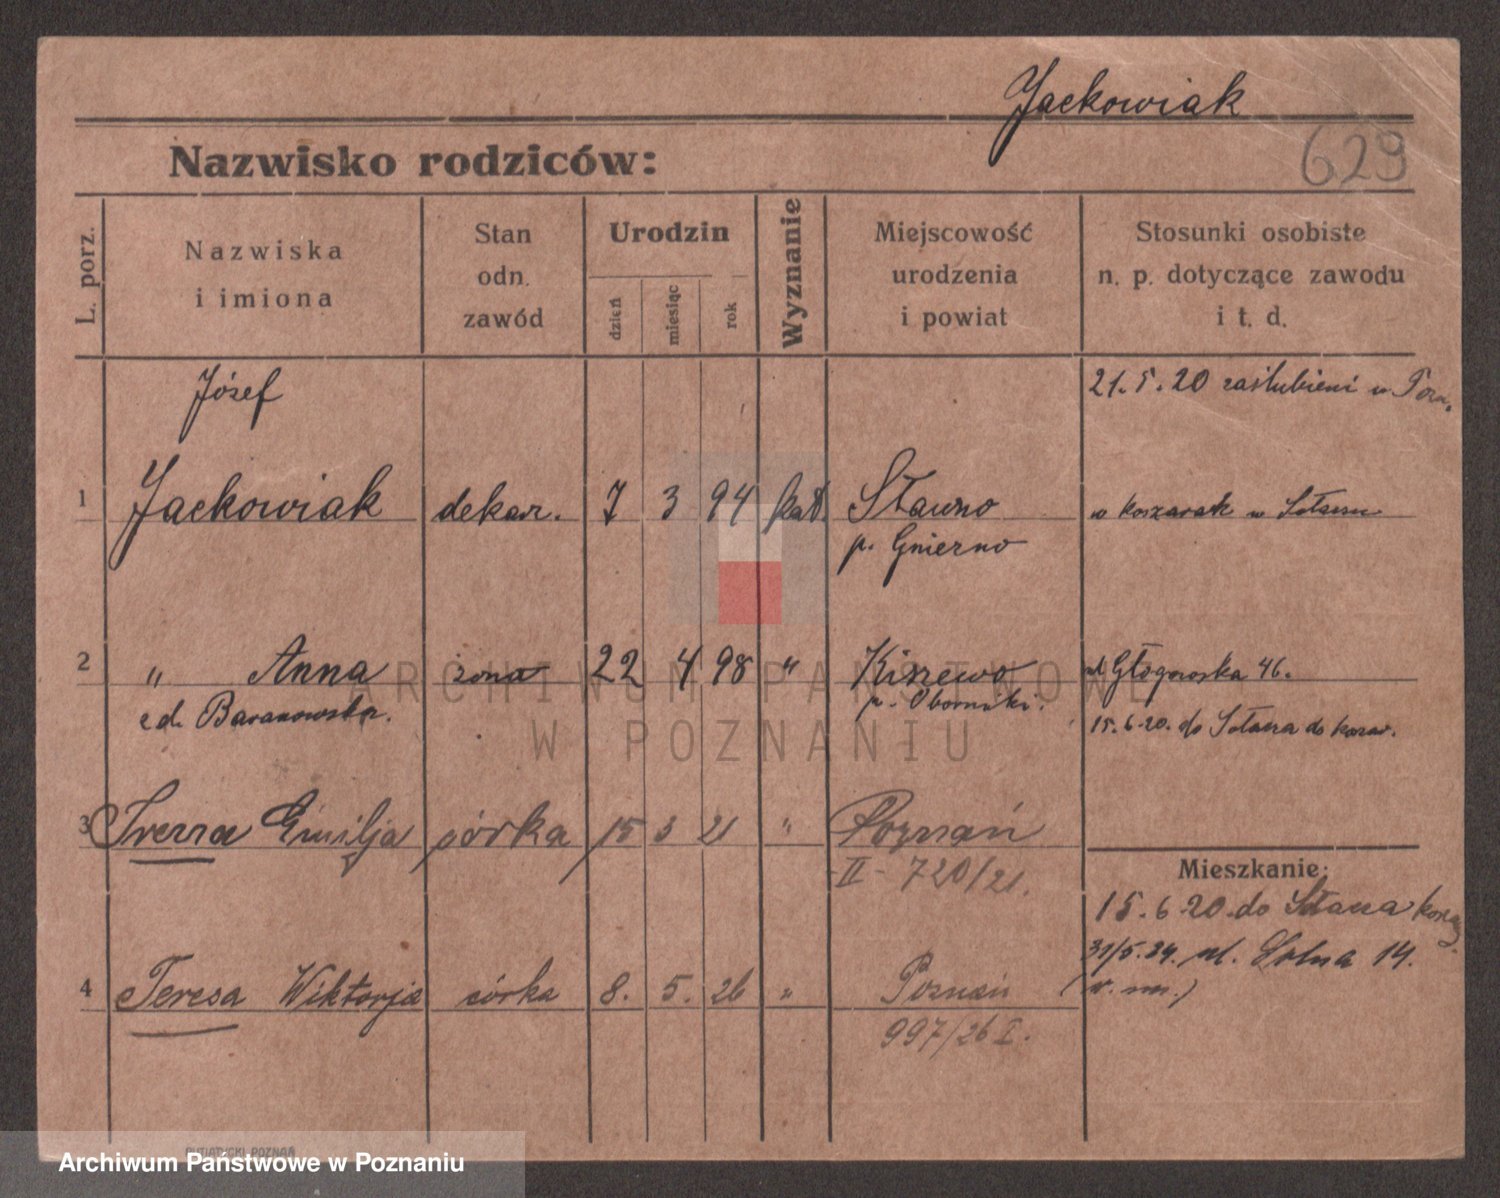 Jackowiak
629
Nazwisko rodziców:
L. porz.
Nazwiska
i imiona
Stan
odn.
zawód
Urodzin
dzień
miesiąc
rok
Wyznanie
Miejscowość
urodzenia
i powiat
Stosunki osobiste
n. p. dotyczące zawodu
i t. d.
Józef
21.5.20 zaślubieni w Pozn.
1 Jackowiak dekar. 7 3 94 kat. Sławno w koszarach w Sołaczu
p. Gniezno
2 " Anna żona 22 4 98 " Kiszewo ul Głogowska 46.
zd. Baranowska. p. Oborniki.
15.6.20. do Sołacza do koszar.
3 Emilja córka 15 3 21 " Poznań
-II- 720/21.
Mieszkanie:
15.6.20. do Sołacza
4 Teresa Wiktorja córka 8. 5. 26 " Poznań
31/5.24. ul. 14.
997/26 I.
ARCHIWUM PAŃSTWOWE
W POZNANIU
Archiwum Państwowe w Poznaniu